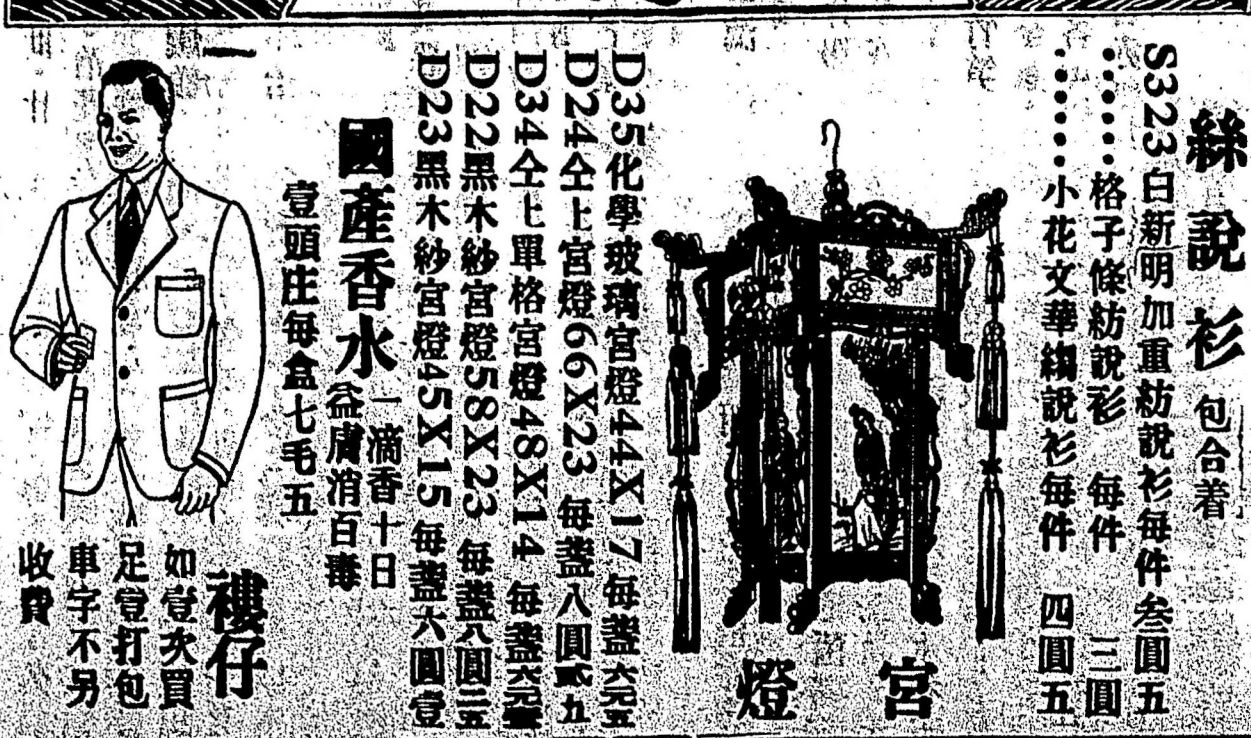 絲說衫 包合着
S323白新明加重紡說衫每件叁圓五
‧‧‧‧‧格子條紡說衫 每件 三圓
‧‧‧‧‧小花文華縐說衫每件 四圓五
宮燈
D35化學玻璃宮燈44X17每盞六元五
D24仝上宮燈66X23 每盞八圓貳九
D34仝上單格宮燈48X14 每盞六元
D22黑木紗宮燈58X23 每盞八圓三五
D23黑木紗宮燈45X15 每盞六圓壹
國產香水 一滴香十日
益膚消百毒
壹頭庄每盒七毛五
褸仔
如壹次買
足壹打包
車字不另
收費